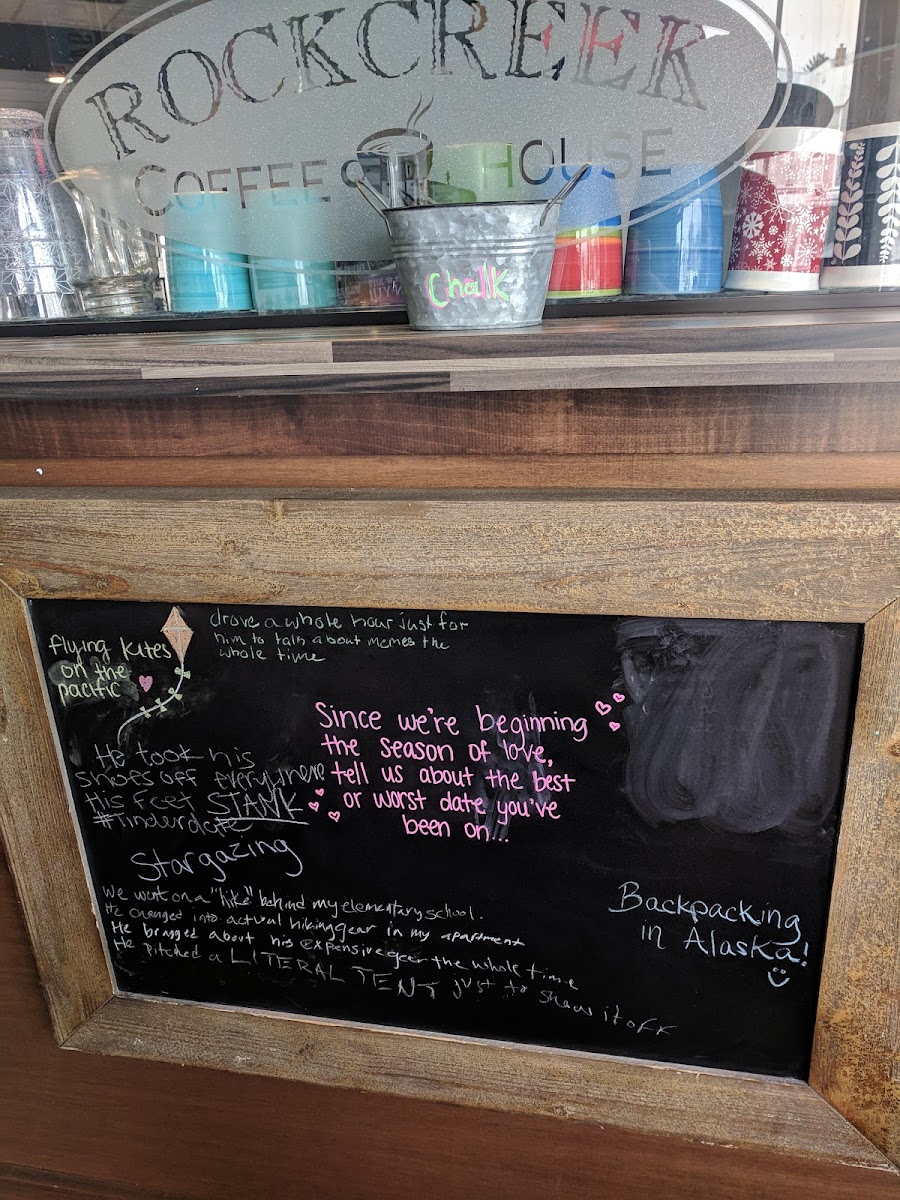 ROCKCREEK
COFFEE HOUSE
Chalk
flying kites
on the
pacific
drove a whole hour just for
him to talk about memes the
whole time
Since we're beginning
the season of love,
tell us about the best
or worst date you've
been on...
He took his
shoes off everywhere
His feet STANK
#Tinderdate
Stargazing
We went on a "hike" behind my elementary school.
He changed into actual hiking gear in my apartment
He bragged about his expensive gear the whole time
He pitched a LITERAL TENT just to show it off
Backpacking
in Alaska!